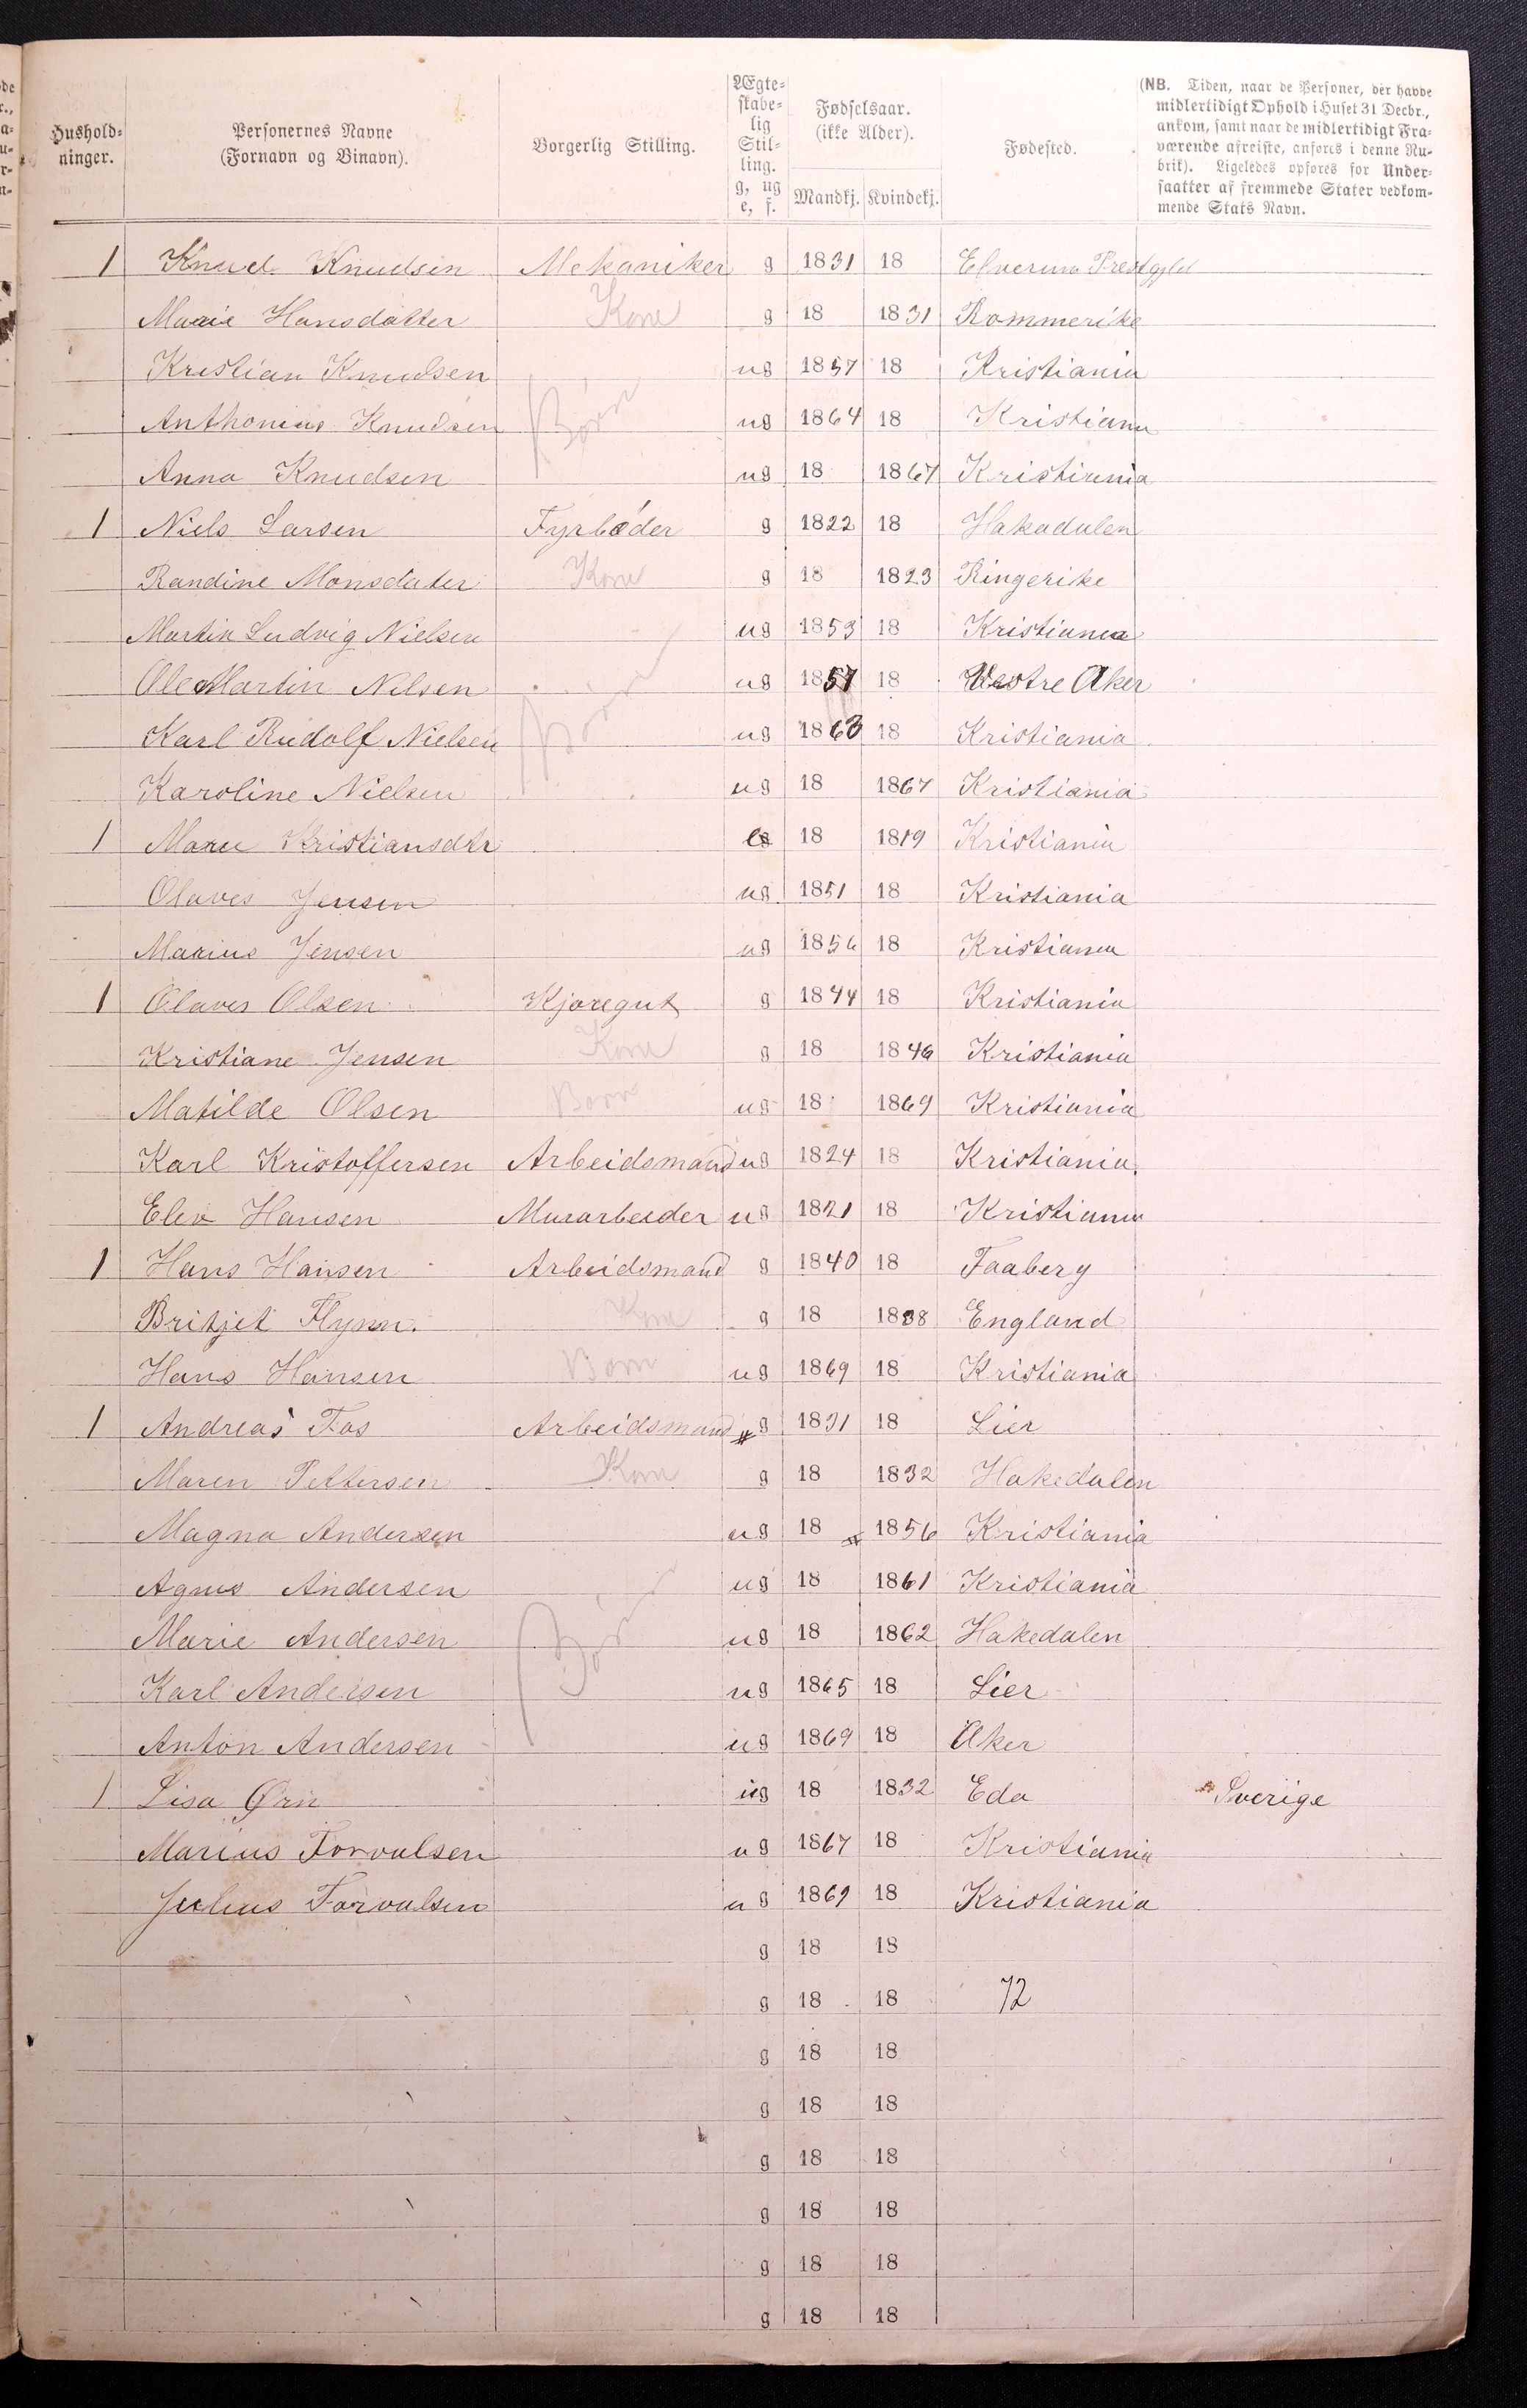 Hushold-ninger. Personernes Navne (Fornavn og Binavn). Borgerlig Stilling. Ægte-skabe-lig Stil-ling. g, ug e, f. Fødselsaar. (ikke Alder). Mandkj. Kvindekj. Fødested.
(NB. Tiden, naar de Personer, der havde
midlertidigt Ophold i Huset 31 Decbr.,
ankom, samt naar de midlertidigt Fra-
værende afreiste, anføres i denne Ru-
brik). Ligeledes opføres for Under-
saatter af fremmede Stater vedkom-
mende Stats Navn.
1 Knud Knudsen Mekaniker g 1831 18 Elverum Prestgjld
Marie Hansdatter Kone g 18 1831 Rommerike
Kristian Knudsen ug 1857 18 Kristiania
Anthonius Knudsen Børn ug 1864 18 Kristiania
Anna Knudsen ug 18 1867 Kristiania
1 Niels Larsen Fyrbøder g 1822 18 Hakadalen
Randine Monsdater Kone g 18 1823 Ringerike
Martin Ludvig Nielsen ug 1853 18 Kristiania
Ole Martin Nilsen ug 1857 18 Vestre Aker
Karl Rudolf Nielsen Børn ug 1863 18 Kristiania
Karoline Nielsen ug 18 1867 Kristiania
1 Maren Kristiansdtr e 18 1819 Kristiania
Olaves Jensen ug 1851 18 Kristiania
Marius Jensen ug 1856 18 Kristiania
1 Olaves Olsen Kjøregut g 1844 18 Kristiania
Kristiane Jensen Kone g 18 1846 Kristiania
Matilde Olsen Barn ug 18 1869 Kristiania
Karl Kristoffersen Arbeidsmand ug 1824 18 Kristiania
Elev Hansen Murarbeider ug 1821 18 Kristiania
1 Hans Hansen Arbeidsmand g 1840 18 Faaberg
Britjet Flynn. Kone g 18 1838 England
Hans Hansen Barn ug 1869 18 Kristiania
1 Andreas Fos Arbeidsmand g 1831 18 Lier
Maren Pettersen Kone g 18 1832 Hakedalen
Magna Andersen ug 18 1856 Kristiania
Agnes Andersen ug 18 1861 Kristiania
Marie Andersen Børn ug 18 1862 Hakedalen
Karl Andersen ug 1865 18 Lier
Anton Andersen ug 1869 18 Aker
1 Lisa Ørn ug 18 1832 Eda Sverige
Marius Torvalsen ug 1867 18 Kristiania
Julius Torvalsen ug 1869 18 Kristiania
g 18 18
g 18 18 72
g 18 18
g 18 18
g 18 18
g 18 18
g 18 18
g 18 18